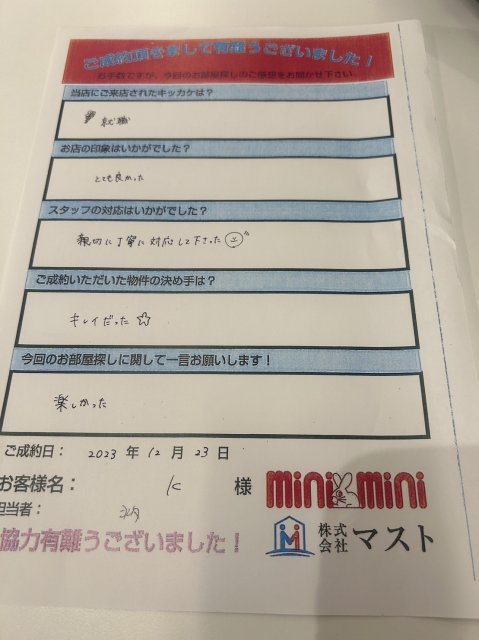 ご成約頂きまして有難うございました！
お手数ですが、今回のお部屋探しのご感想をお聞かせ下さい
当店にご来店されたキッカケは？
就職
お店の印象はいかがでした？
とても良かった
スタッフの対応はいかがでした？
親切に丁寧に対応して下さった
ご成約いただいた物件の決め手は？
キレイだった☆
今回のお部屋探しに関して一言お願いします！
楽しかった
ご成約日： 2023 年 12 月 23 日
お客様名： K 様
担当者：
協力有難うございました！
mini mini
株式会社 マスト